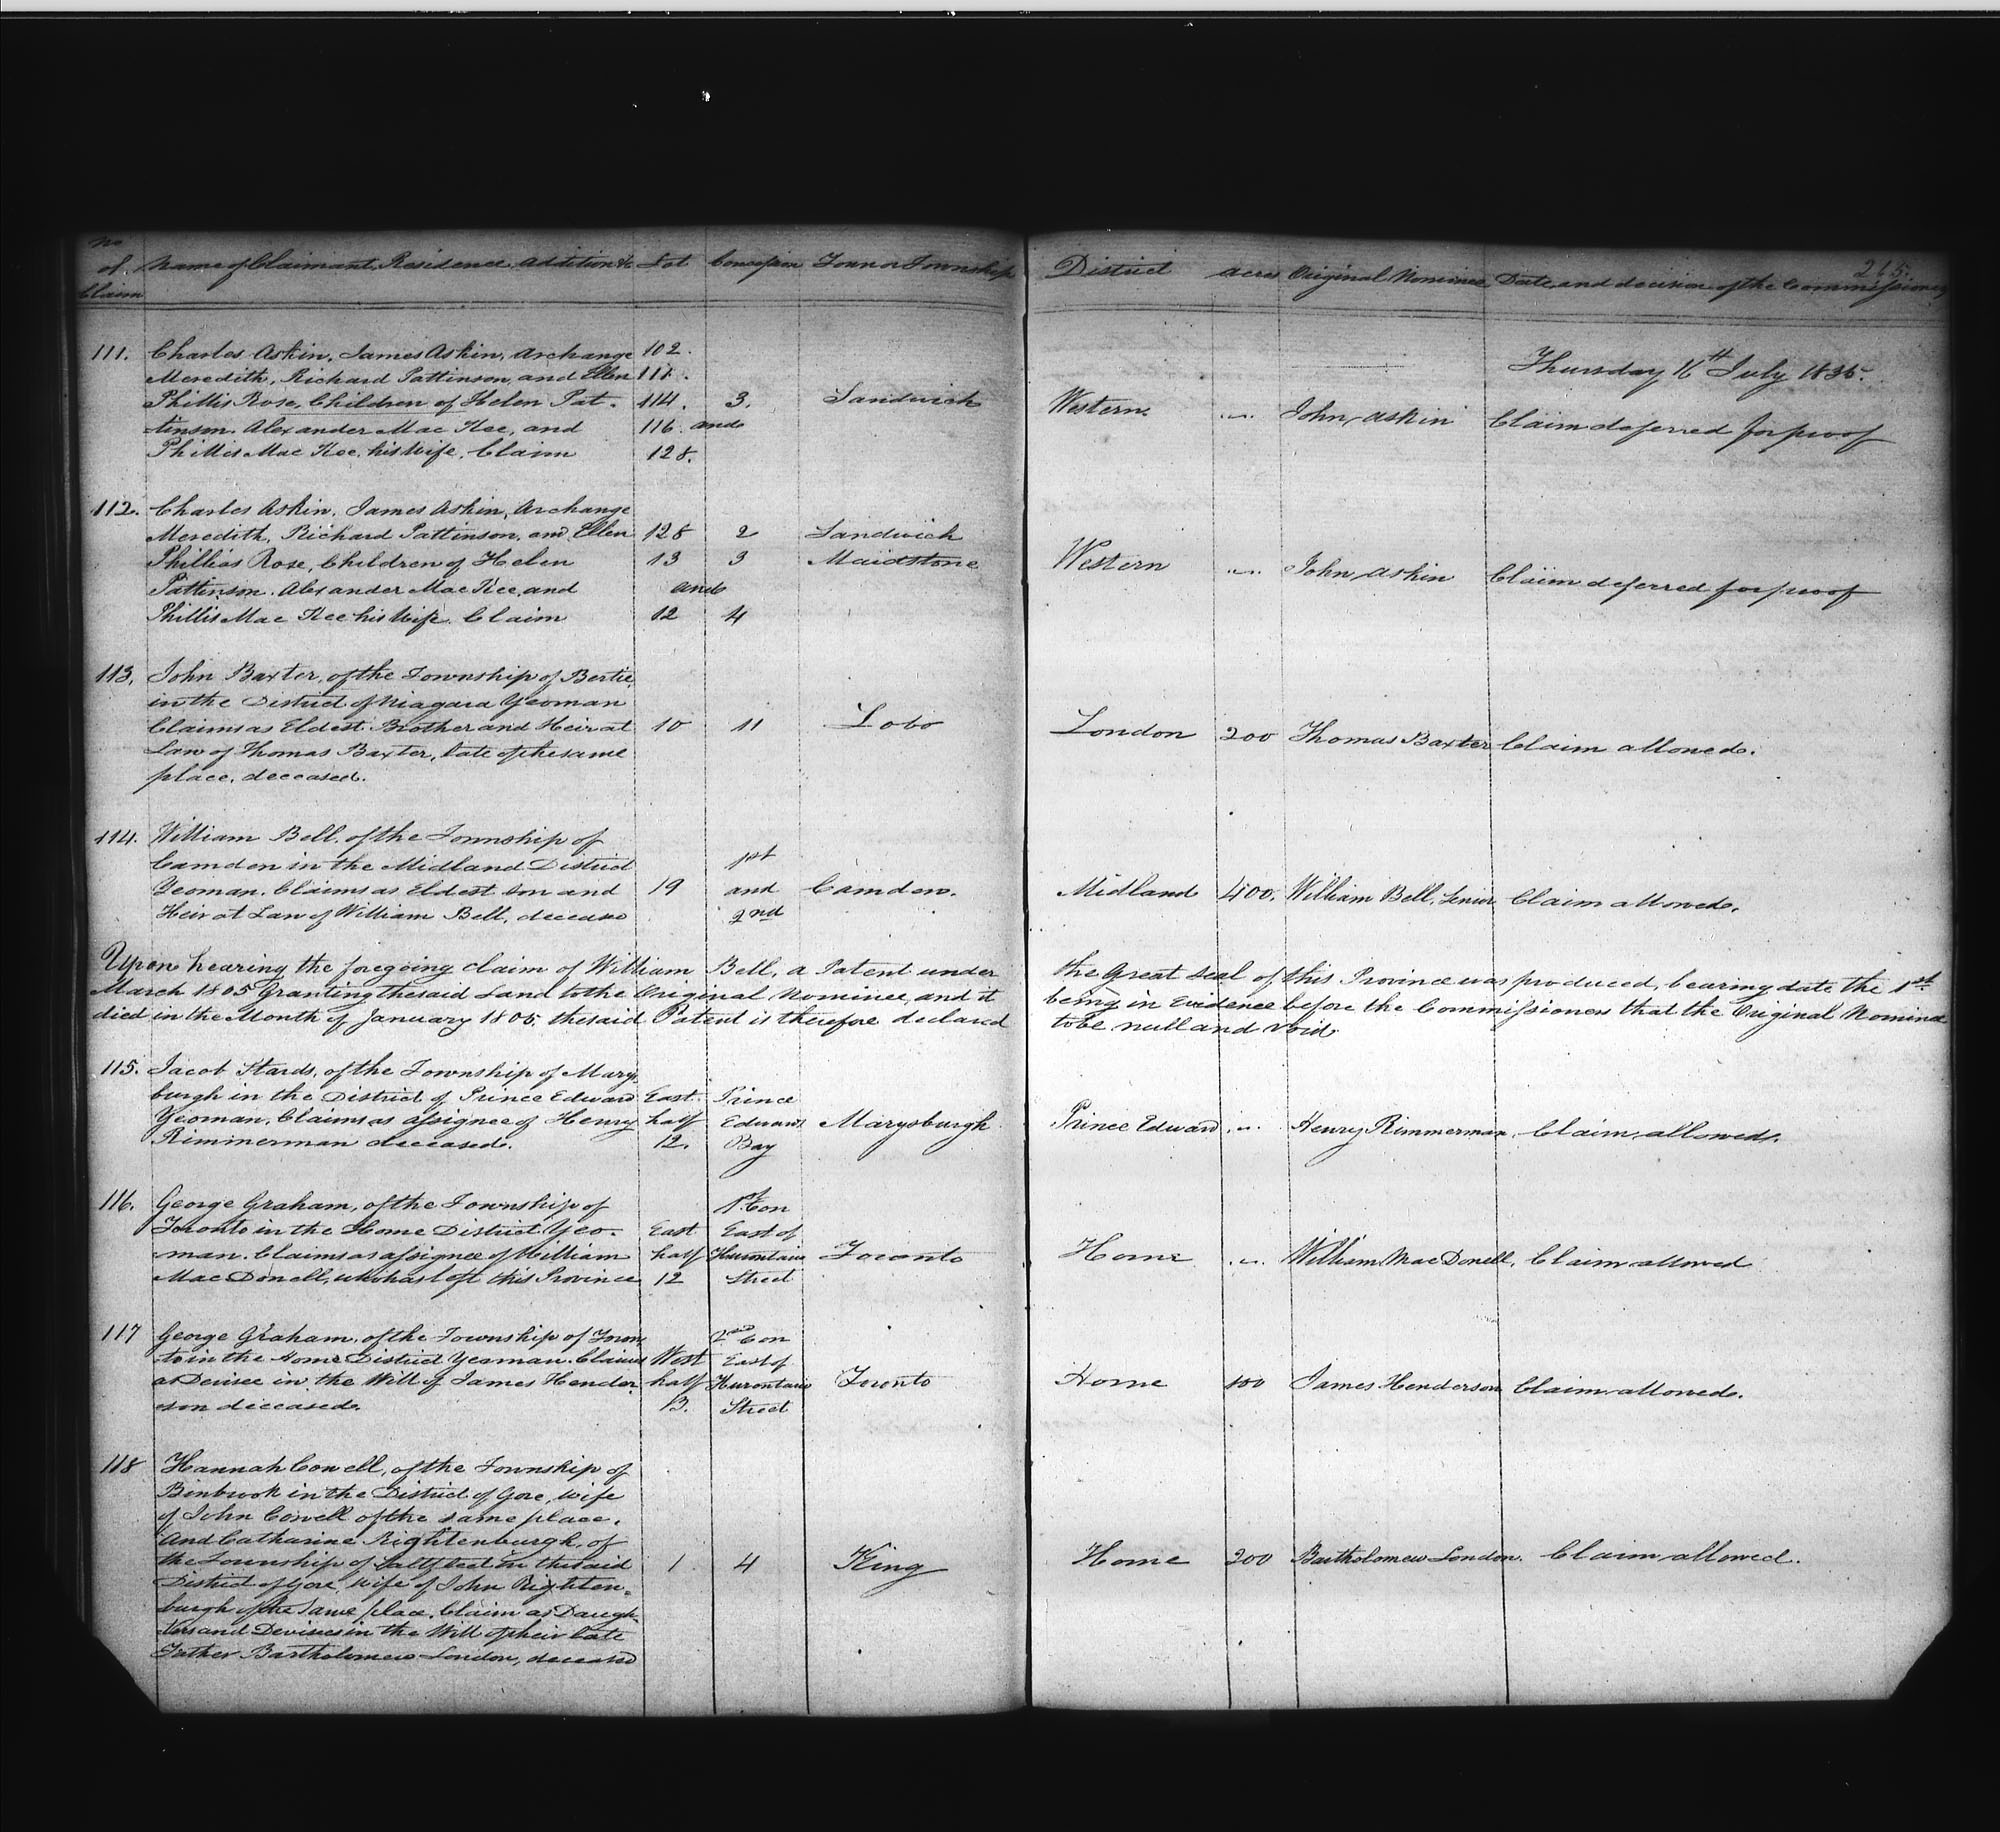 265.
No of Claim Name of Claimant, Residence, Addition &c Lot Concession Town or Township District acres Original Nominee Date and decision of the Commissioners
Thursday 16th July 1835.
111. Charles Askin, James Askin, Archange 102.
Meredith, Richard Pattinson, and Ellen 111.
Phillis Rose, Children of Helen Pat- 114. 3. Sandwich Western " John Askin Claim deferred for proof
tinson. Alexander Mac Kee, and 116. and
Phillis Mac Kee, his Wife. Claim 128.
112. Charles Askin, James Askin, Archange
Meredith, Richard Pattinson, and Ellen 128 2 Sandwich
Phillis Rose, Children of Helen 13 3 Maidstone Western " John Askin Claim deferred for proof
Pattinson. Alexander Mac Kee, and and
Phillis Mac Kee his Wife. Claim 12 4
113. John Baxter, of the Township of Bertie,
in the District of Niagara Yeoman
Claims as Eldest Brother and Heir at 10 11 Lobo London 200 Thomas Baxter Claim allowed.
Law of Thomas Baxter, late of the same
place, deceased.
114. William Bell, of the Township of
Camden in the Midland District 1st
Yeoman. Claims as Eldest Son and 19 and Camden. Midland 400. William Bell, Senior Claim allowed.
Heir at Law of William Bell, deceased 2nd
Upon hearing the foregoing claim of William Bell, a Patent under the Great Seal of this Province was produced, bearing date the 1st
March 1805 Granting the said Land to the Original Nominee, and it being in Evidence before the Commissioners that the Original Nominee
died in the Month of January 1805, the said Patent is therefore declared to be null and void.
115. Jacob Stards, of the Township of Marys-
burgh in the District of Prince Edward East Prince
Yeoman, Claims as assignee of Henry half Edward Marysburgh Prince Edward " Henry Rimmerman. Claim allowed.
Rimmerman deceased. 12. Bay
116. George Graham, of the Township of 1st Con
Toronto in the Home District Yeo- East East of
man. Claims as assignee of William half Hurontario Toronto Home " William MacDonell, Claim allowed
MacDonell, who has left this Province 12 Street
117 George Graham, of the Township of Toron- 2nd Con
to in the Home District Yeoman. Claims West East of
as Devisee in the Will of James Hender- half Hurontario Toronto Home 100 James Henderson Claim allowed.
son deceased. 13. Street
118 Hannah Cowell, of the Township of
Binbrook in the District of Gore, wife
of John Cowell of the same place,
And Catharine Rightenburgh, of
the Township of Saltfleet in the said 1 4 King Home 200 Bartholomew London. Claim allowed.
District of Gore, wife of John Righten-
burgh of the same place, Claim as Daugh-
ters and Devisees in the Will of their late
Father Bartholomew London, deceased